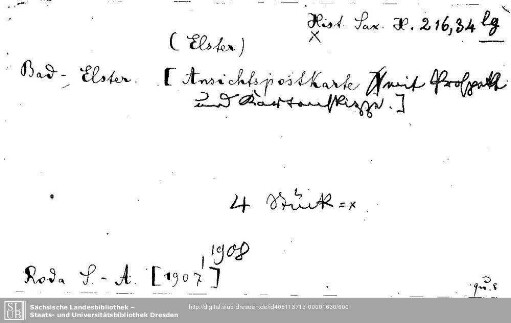 Hist. Sax. H. 216,34 lg
x
(Elster)
Bad-Elster. [Ansichtspostkarte mit Prospekt
und Kartenskizze.]
4 Stück = x
1908
Roda S.-A. [1907]
Sächsische Landesbibliothek –
Staats- und Universitätsbibliothek Dresden